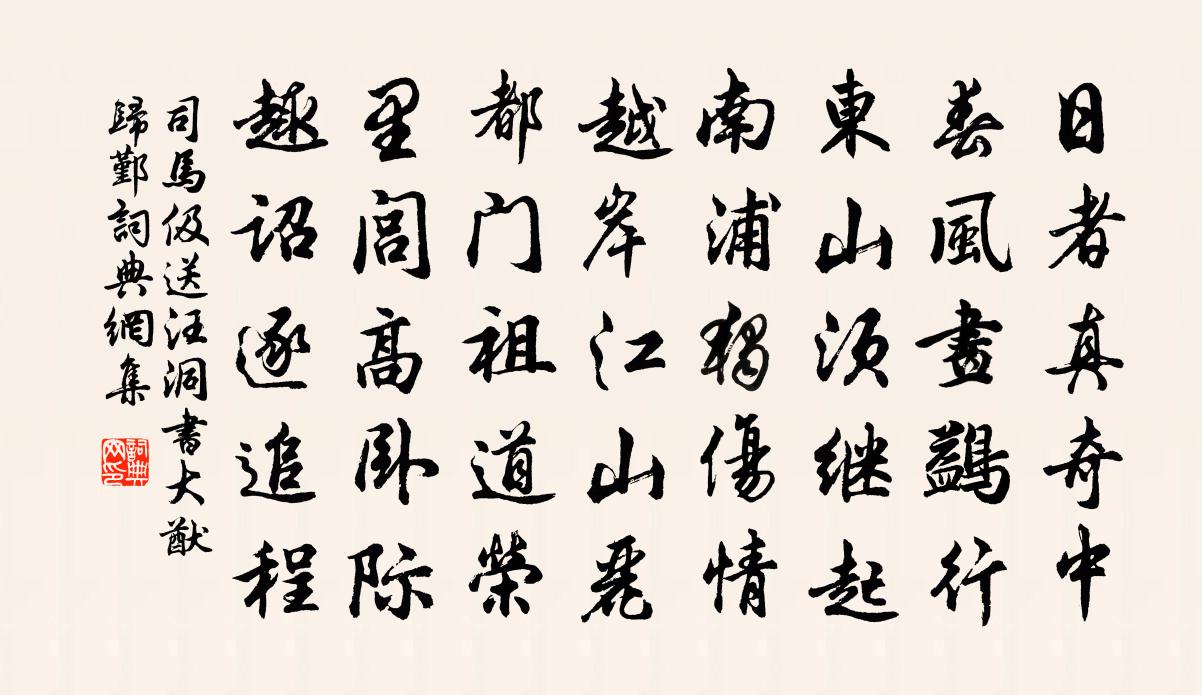 日者真奇中
春風畫鷁行
東山须继起
南浦獨傷情
越岸江山麗
都门祖道榮
里閭高卧际
趣诏逐追程
司馬伋送汪洞書大猷
歸鄞詞典網集
詞典網印